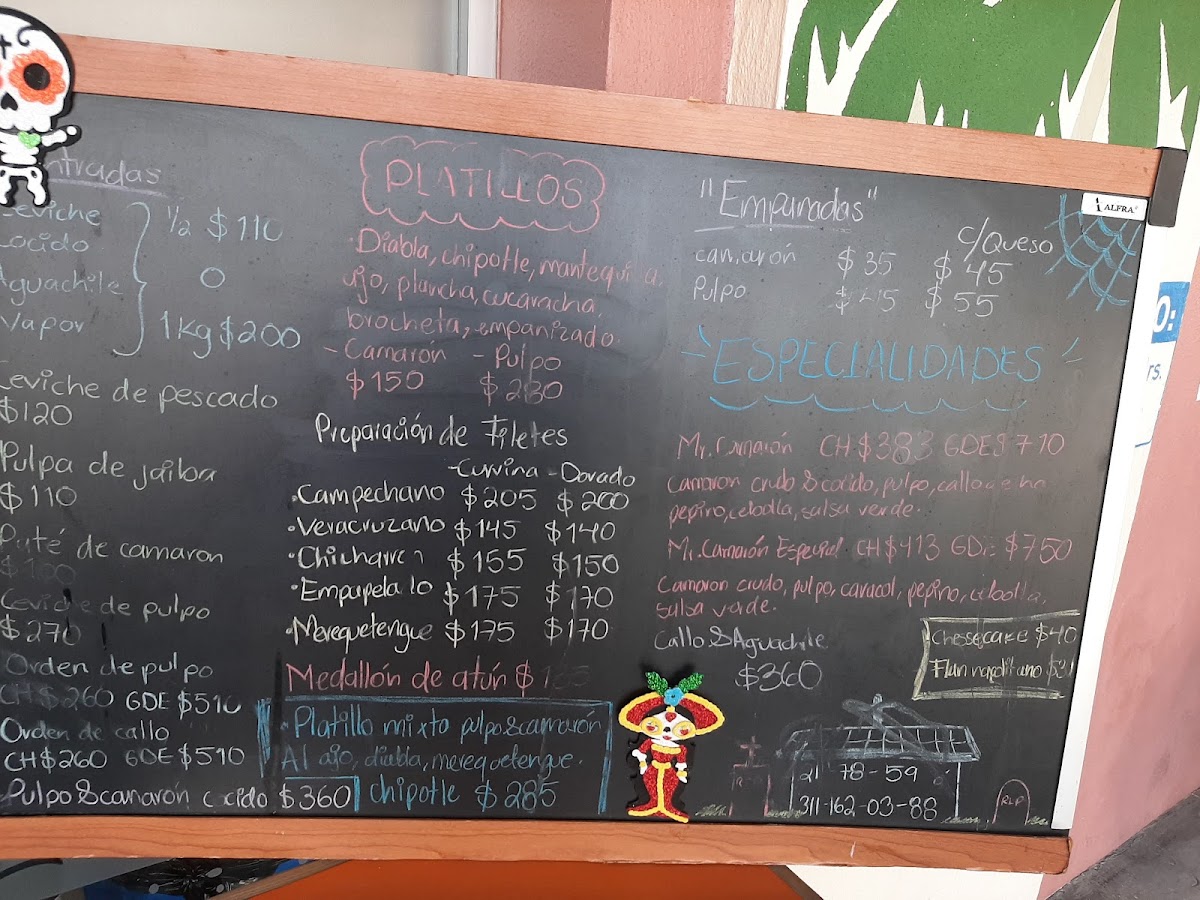 Entradas
Ceviche
Cocido
Aguachile
Vapor
1/2 $110
O
1kg $200
Ceviche de pescado
$120
Pulpa de jaiba
$110
Paté de camaron
$100
Ceviche de pulpo
$270
Orden de pulpo
CH $260 GDE $510
Orden de callo
CH $260 GDE $510
Pulpo & camarón cocido $360
PLATILLOS
·Diabla, chipotle, mantequilla,
ajo, plancha, cucaracha,
brocheta, empanizado.
- Camarón - Pulpo
$150 $280
Preparación de Filetes
-Curvina -Dorado
·Campechano $205 $200
·Veracruzano $145 $140
·Chicharron $155 $150
·Empapelado $175 $170
·Merequetengue $175 $170
Medallón de atún
·Platillo mixto pulpo & camarón
Al ajo, diabla, merequetengue.
chipotle $285
"Empanadas"
c/Queso
camarón $35 $45
Pulpo $45 $55
ESPECIALIDADES
Mr. Camarón CH $383 GDE $710
Camaron crudo & cocido, pulpo, callo de ha
pepino, cebolla, salsa verde.
Mr. Camarón Especial CH $413 GDE $750
Camaron crudo, pulpo, caracol, pepino, cebolla,
salsa verde.
Callo & Aguachile
$360
Chessecake $40
Flan napolitano
21-78-59
311-162-03-88
RLP
ALFRA
O:
rs.